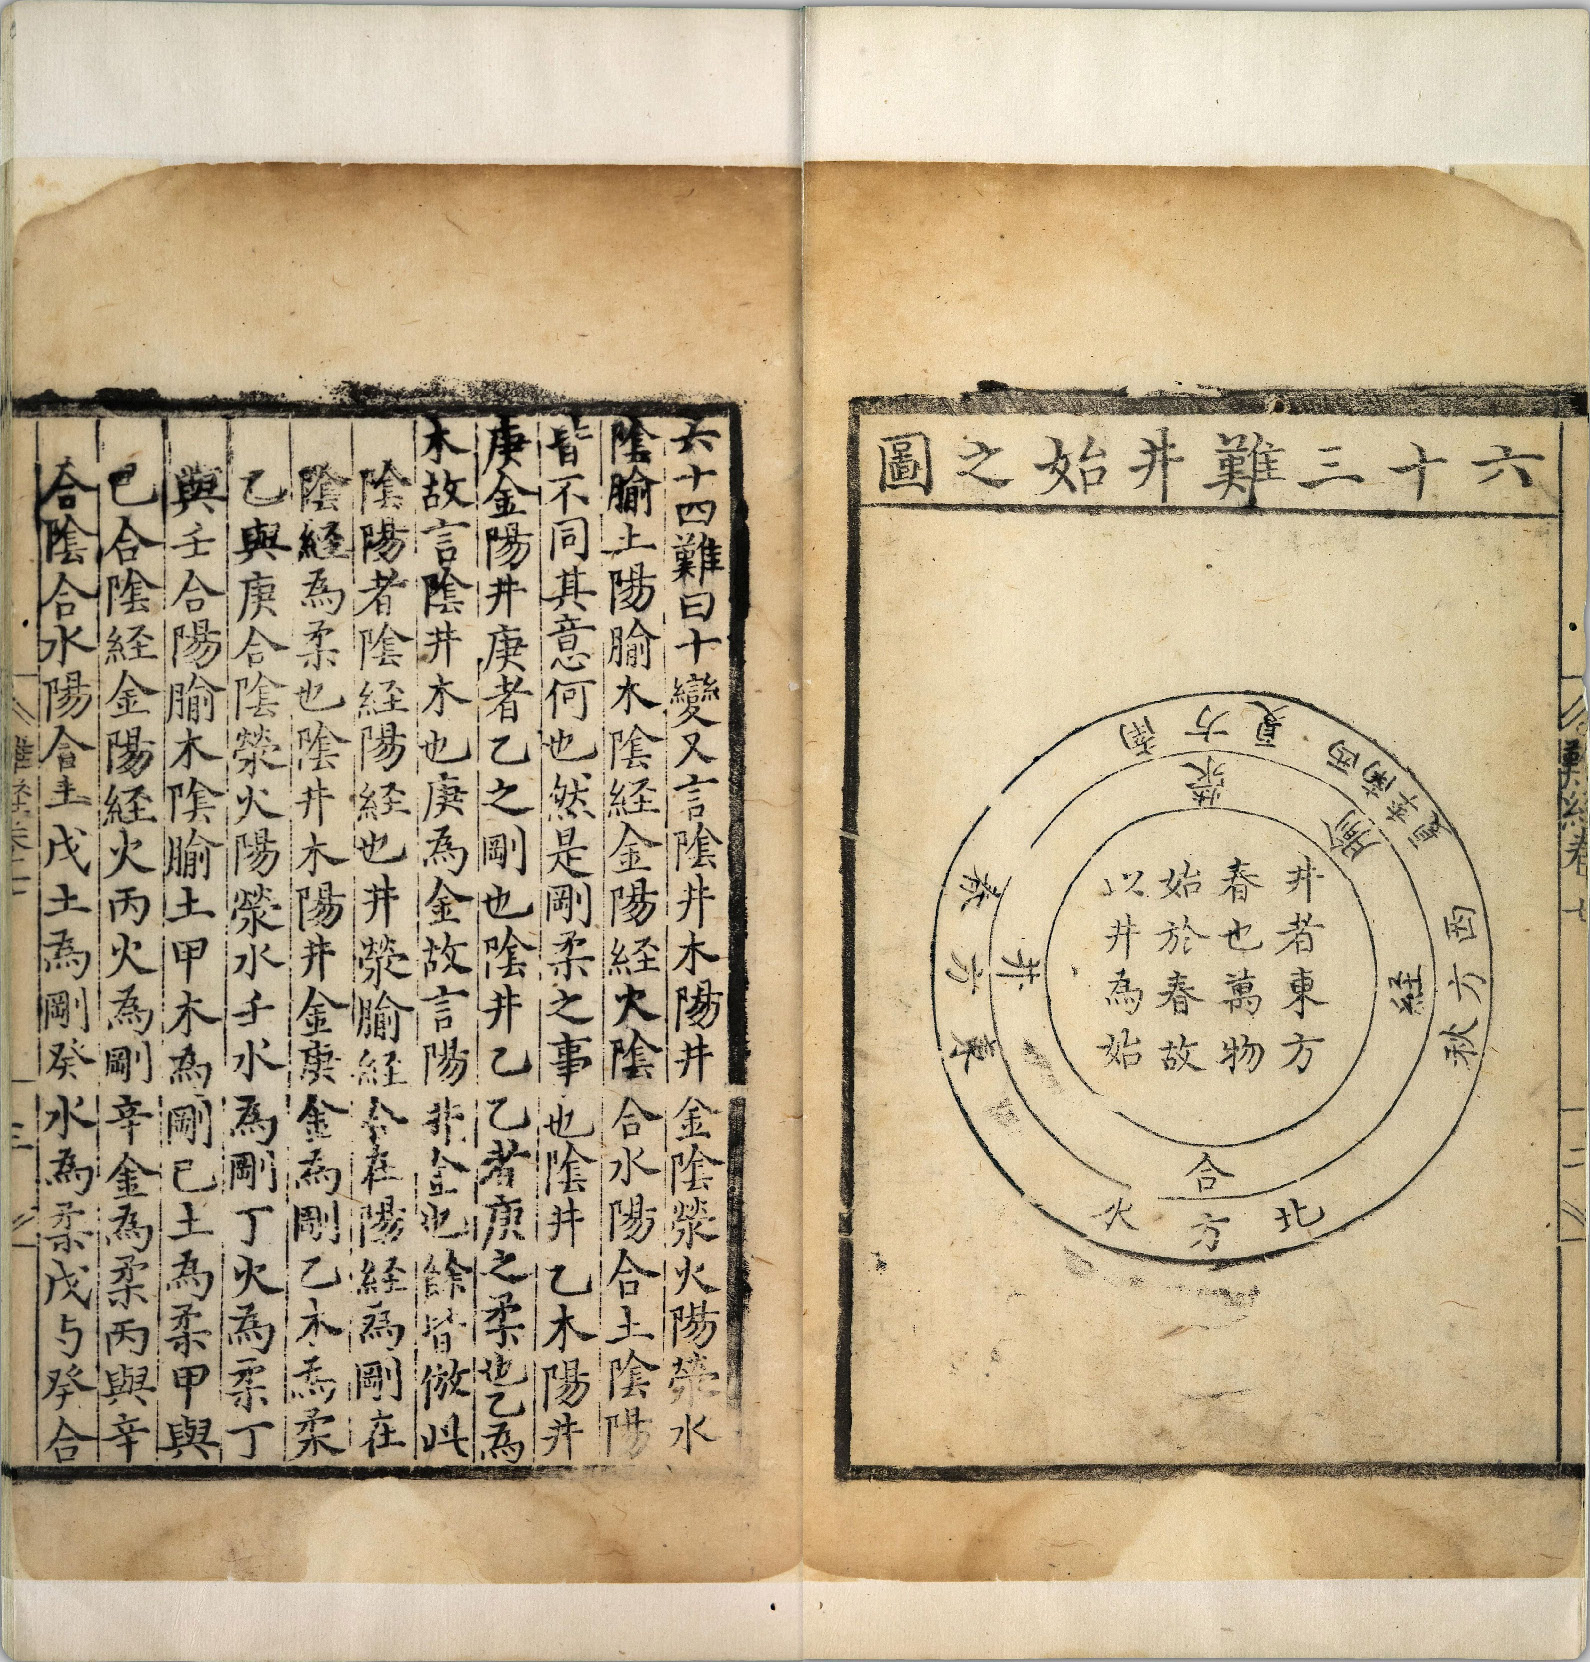 六十三難井始之圖
南方夏
滎
夏季南西
西方秋
経
北方
合
東方春
井
井者東方
春也萬物
始於春故
以井為始
六十四難曰十變又言陰井木陽井金陰滎火陽滎水
陰腧土陽腧木陰経金陽経火陰合水陽合土陰陽
皆不同其意何也然是剛柔之事也陰井乙木陽井
庚金陽井庚者乙之剛也陰井乙乙者庚之柔也乙為
木故言陰井木也庚為金故言陽井金也餘皆倣此
陰陽者陰経陽経也井滎腧経合在陽経為剛在
陰経為柔也陰井木陽井金庚金為剛乙木為柔
乙與庚合陰滎火陽滎水壬水為剛丁火為柔丁
與壬合陽腧木陰腧土甲木為剛己土為柔甲與
己合陰経金陽経火丙火為剛辛金為柔丙與辛
合陰合水陽合土戊土為剛癸水為柔戊与癸合